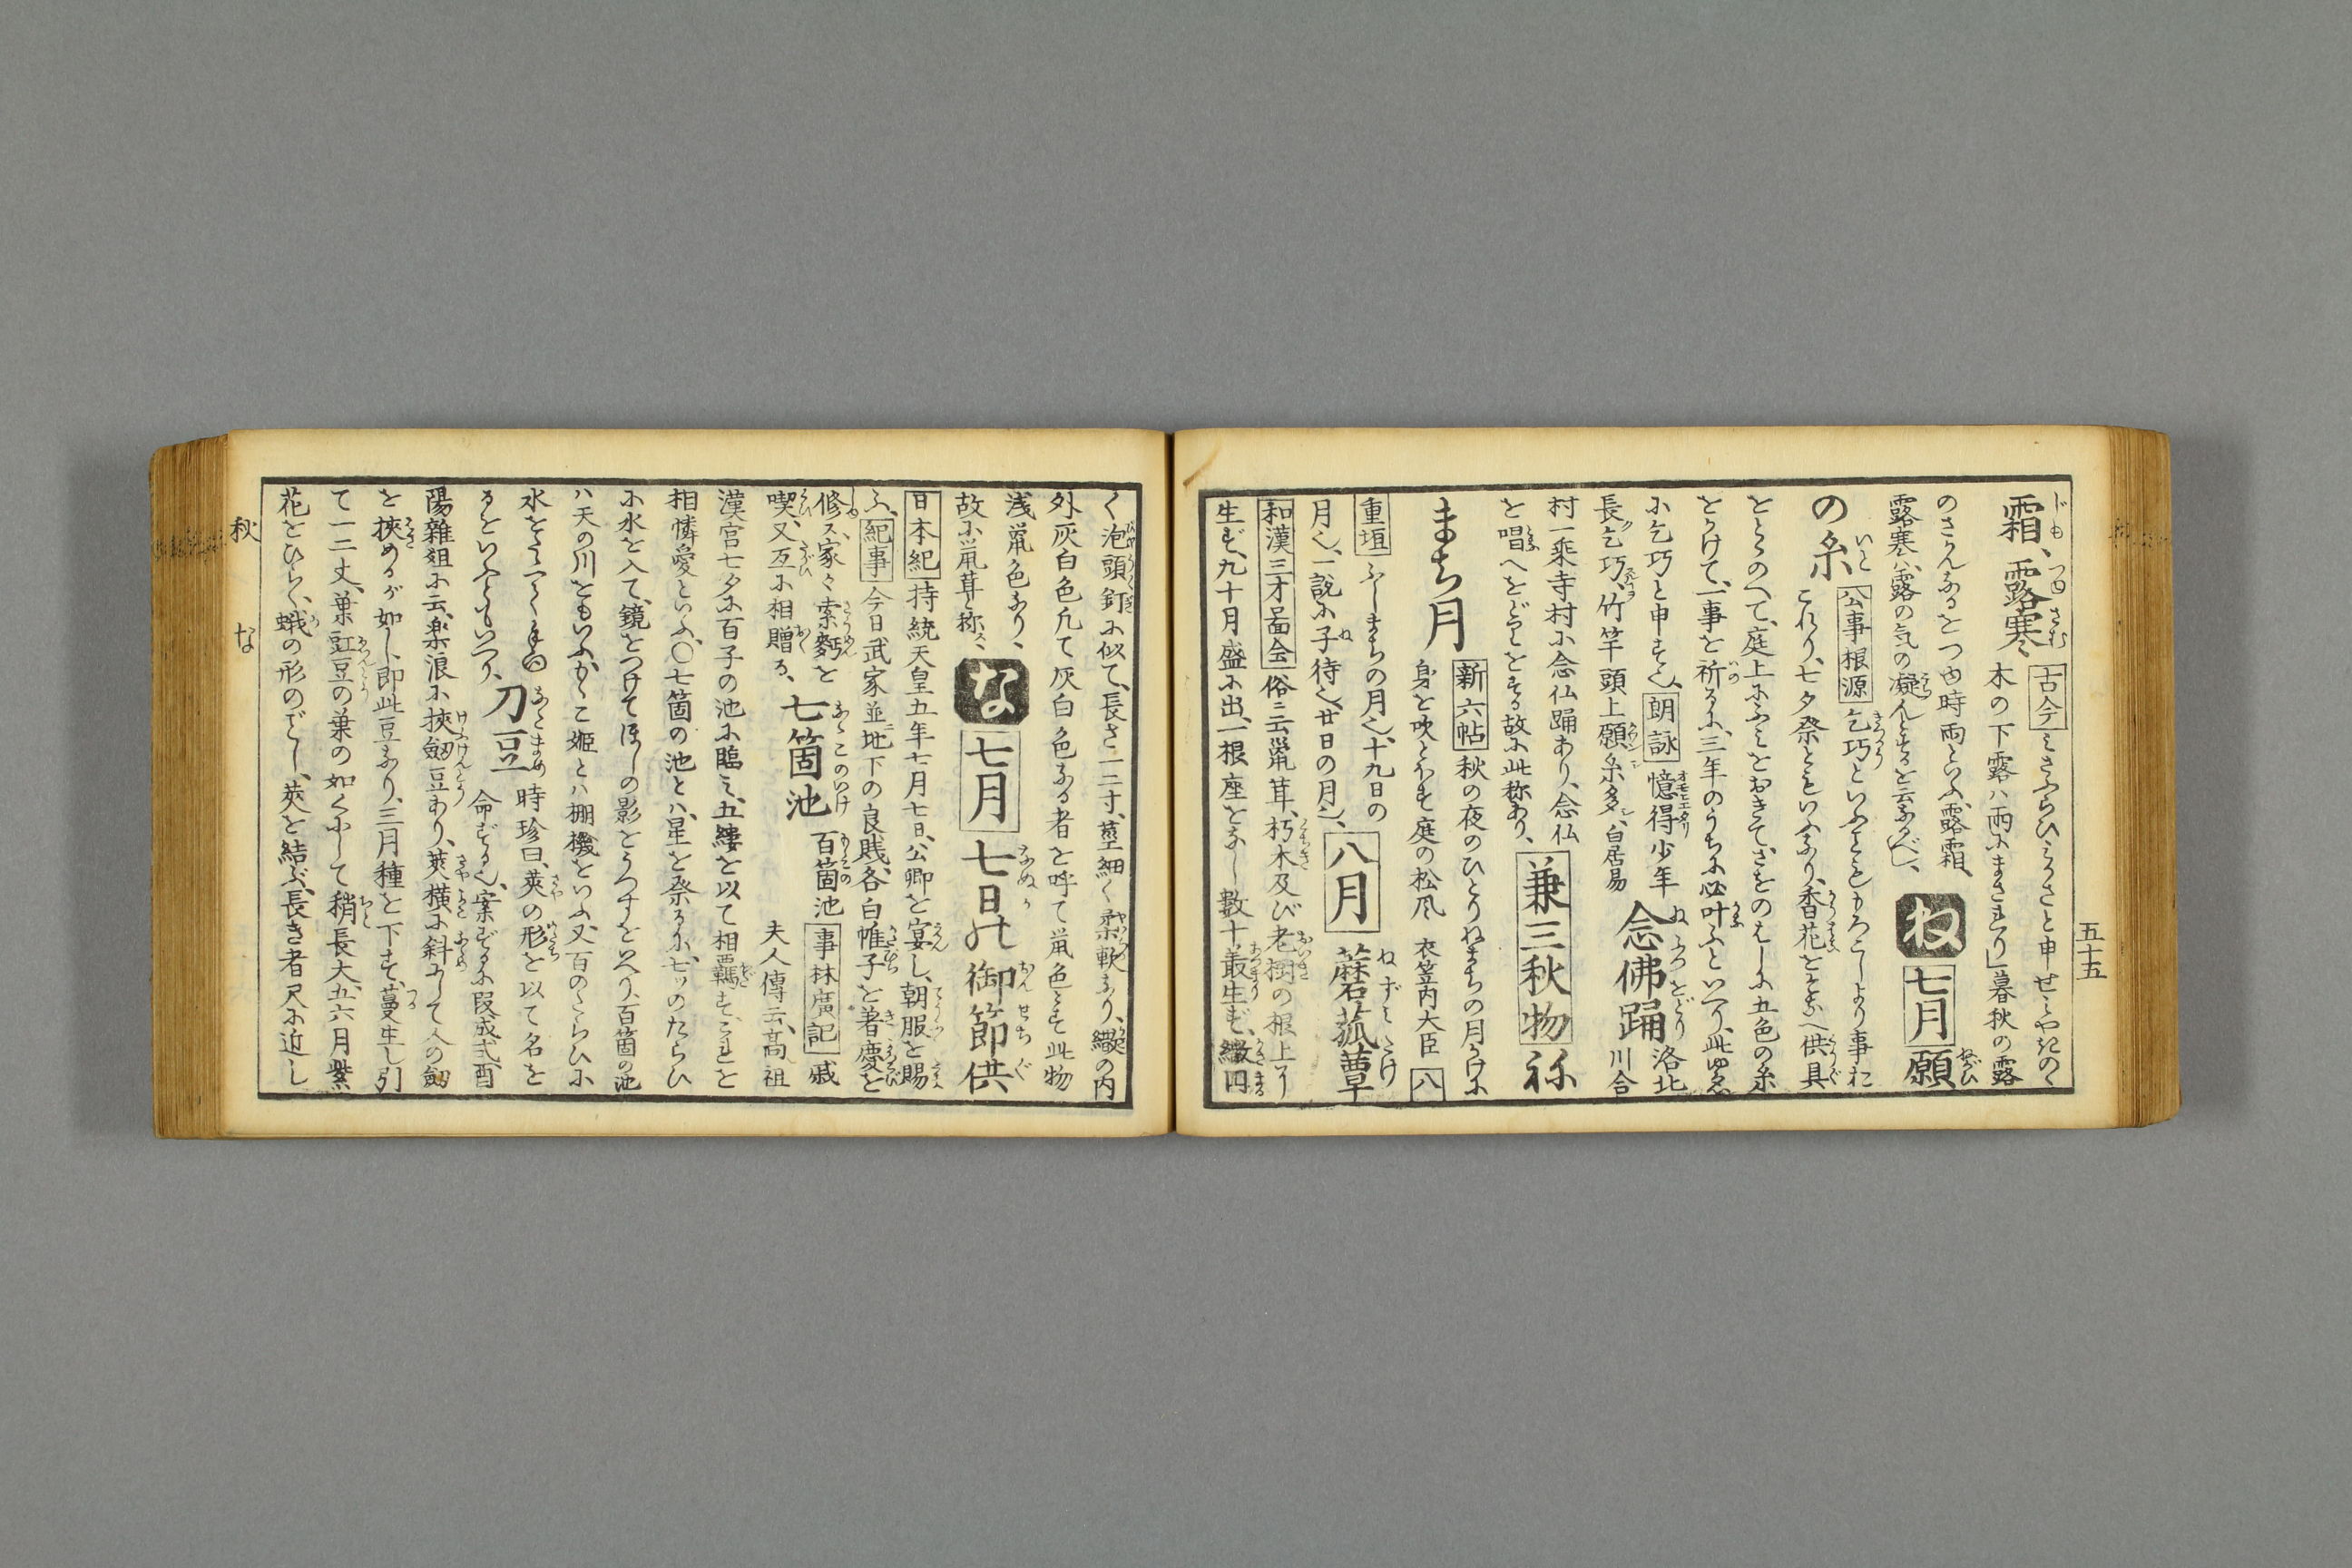 五十五
霜、露寒 古今 みさふらひみかさと申せみやぎのゝ
木の下露ハ雨にまされり」暮秋の露
のさかんなるをつゆ時雨といふ、露霜、
露寒ハ、露の気の凝んとするを云なるべし、 ね 七月 願
の糸 公事根源 乞巧といふこともゝろこしより事お
これり、七夕祭ともいふなり、香花をそなへ供具
をとゝのへて、庭上にふみをおきて、さをのはしに五色の糸
をかけて、一事を祈るに、三年のうちに必叶ふといへり、此ゆゑ
に乞巧と申すなり、 朗詠 憶得少年
長乞巧、竹竿頭上願糸多、白居易 念佛踊 洛北
川合
村一乗寺村に念仏踊あり、念仏
を唱へをどりをする故に此称あり、 兼三秋物 ね
まち月 新六帖 秋の夜のひとりねまちの月かけに
身を吹とほす庭の松風 衣笠内大臣 八
重垣 ふしまちの月也、十九日の
月也、一説に子待也、廿日の月也、 八月 蘑菰蕈
和漢三才圖会 俗ニ云鼠茸、朽木及び老樹の根上ヨリ
生ず、九十月盛に出、一根座をなし数十叢生ず、繖円
く泡頭釘に似て、長さ一二寸、莖細く柔軟なり、繖の内
外灰白色凡て灰白色なる者を呼て鼠色とす此物
浅鼠色なり、
故に鼠茸と称す、 な 七月 七日の御節供
日本紀 持統天皇五年七月七日、公卿を宴し、朝服を賜
ふ、 紀事 今日武家並ニ地下の良賎、各白帷子を著慶を
修ス、家々索麪を
喫、又互に相贈る、 七箇池 百箇池 事林廣記 戚
夫人傳云、高祖
漢宮七夕に百子の池に臨ミ、五縷を以て相羈す、これを
相憐愛といふ、〇七箇の池とハ、星を祭るに、七ツのたらひ
に水を入て、鏡をつけてほしの影をうつすをいへり、百箇の池
ハ天の川をもいふか、こ姫とハ棚機をいふ、又百のたらひに
水をみてゝ
るをいふともいへり、 刀豆 時珍曰、莢の形を以て名を
命ずる也、案ずるに段成式酉
陽雜俎に云、楽浪に挾劔豆あり、莢横に斜にして人の劔
を挾めるが如し、即此豆なり、三月種を下す、蔓生し引
て一二丈、葉豇豆の葉の如くにして稍長大、五六月紫
花をひらく、蛾の形のごとし、莢を結ぶ、長き者尺に近し
秋 な